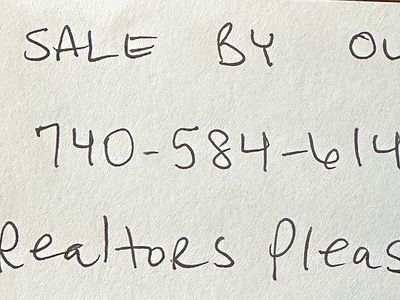 SALE BY OW
740-584-614
Realtors Pleas